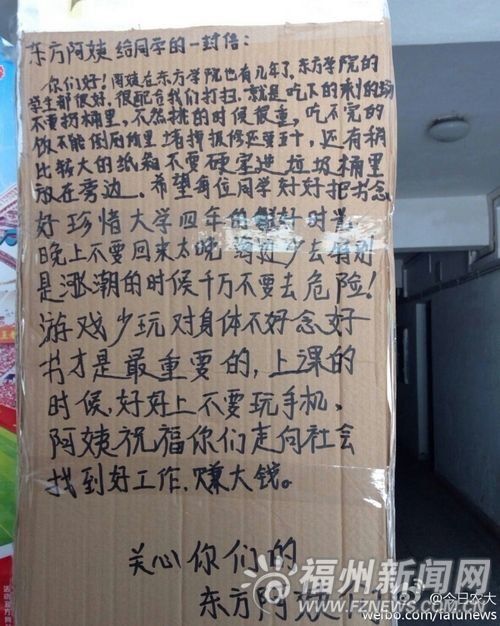 东方阿姨给同学的一封信:
你们好!阿姨在东方学院也有几年了,东方学院的
学生都很好,很配合我们打扫,就是吃下的剩的汤
不要扔桶里,不然挑的时候很重,吃不完的
饭不能倒厕所里堵掉拔修还要五十,还有稍
比较大的纸箱不要硬塞进垃圾桶里
放在旁边。希望每位同学好好把书念
好珍惜大学四年的美好时光
晚上不要回来太晚 海边少去特别
是涨潮的时候千万不要去危险!
游戏少玩对身体不好念好
书才是最重要的,上课的
时候,好好上不要玩手机,
阿姨祝福你们走向社会
找到好工作,赚大钱。
关心你们的
东方阿姨
福州新闻网
WWW.FZNEWS.COM.CN
@今日农大
weibo.com/fafunews